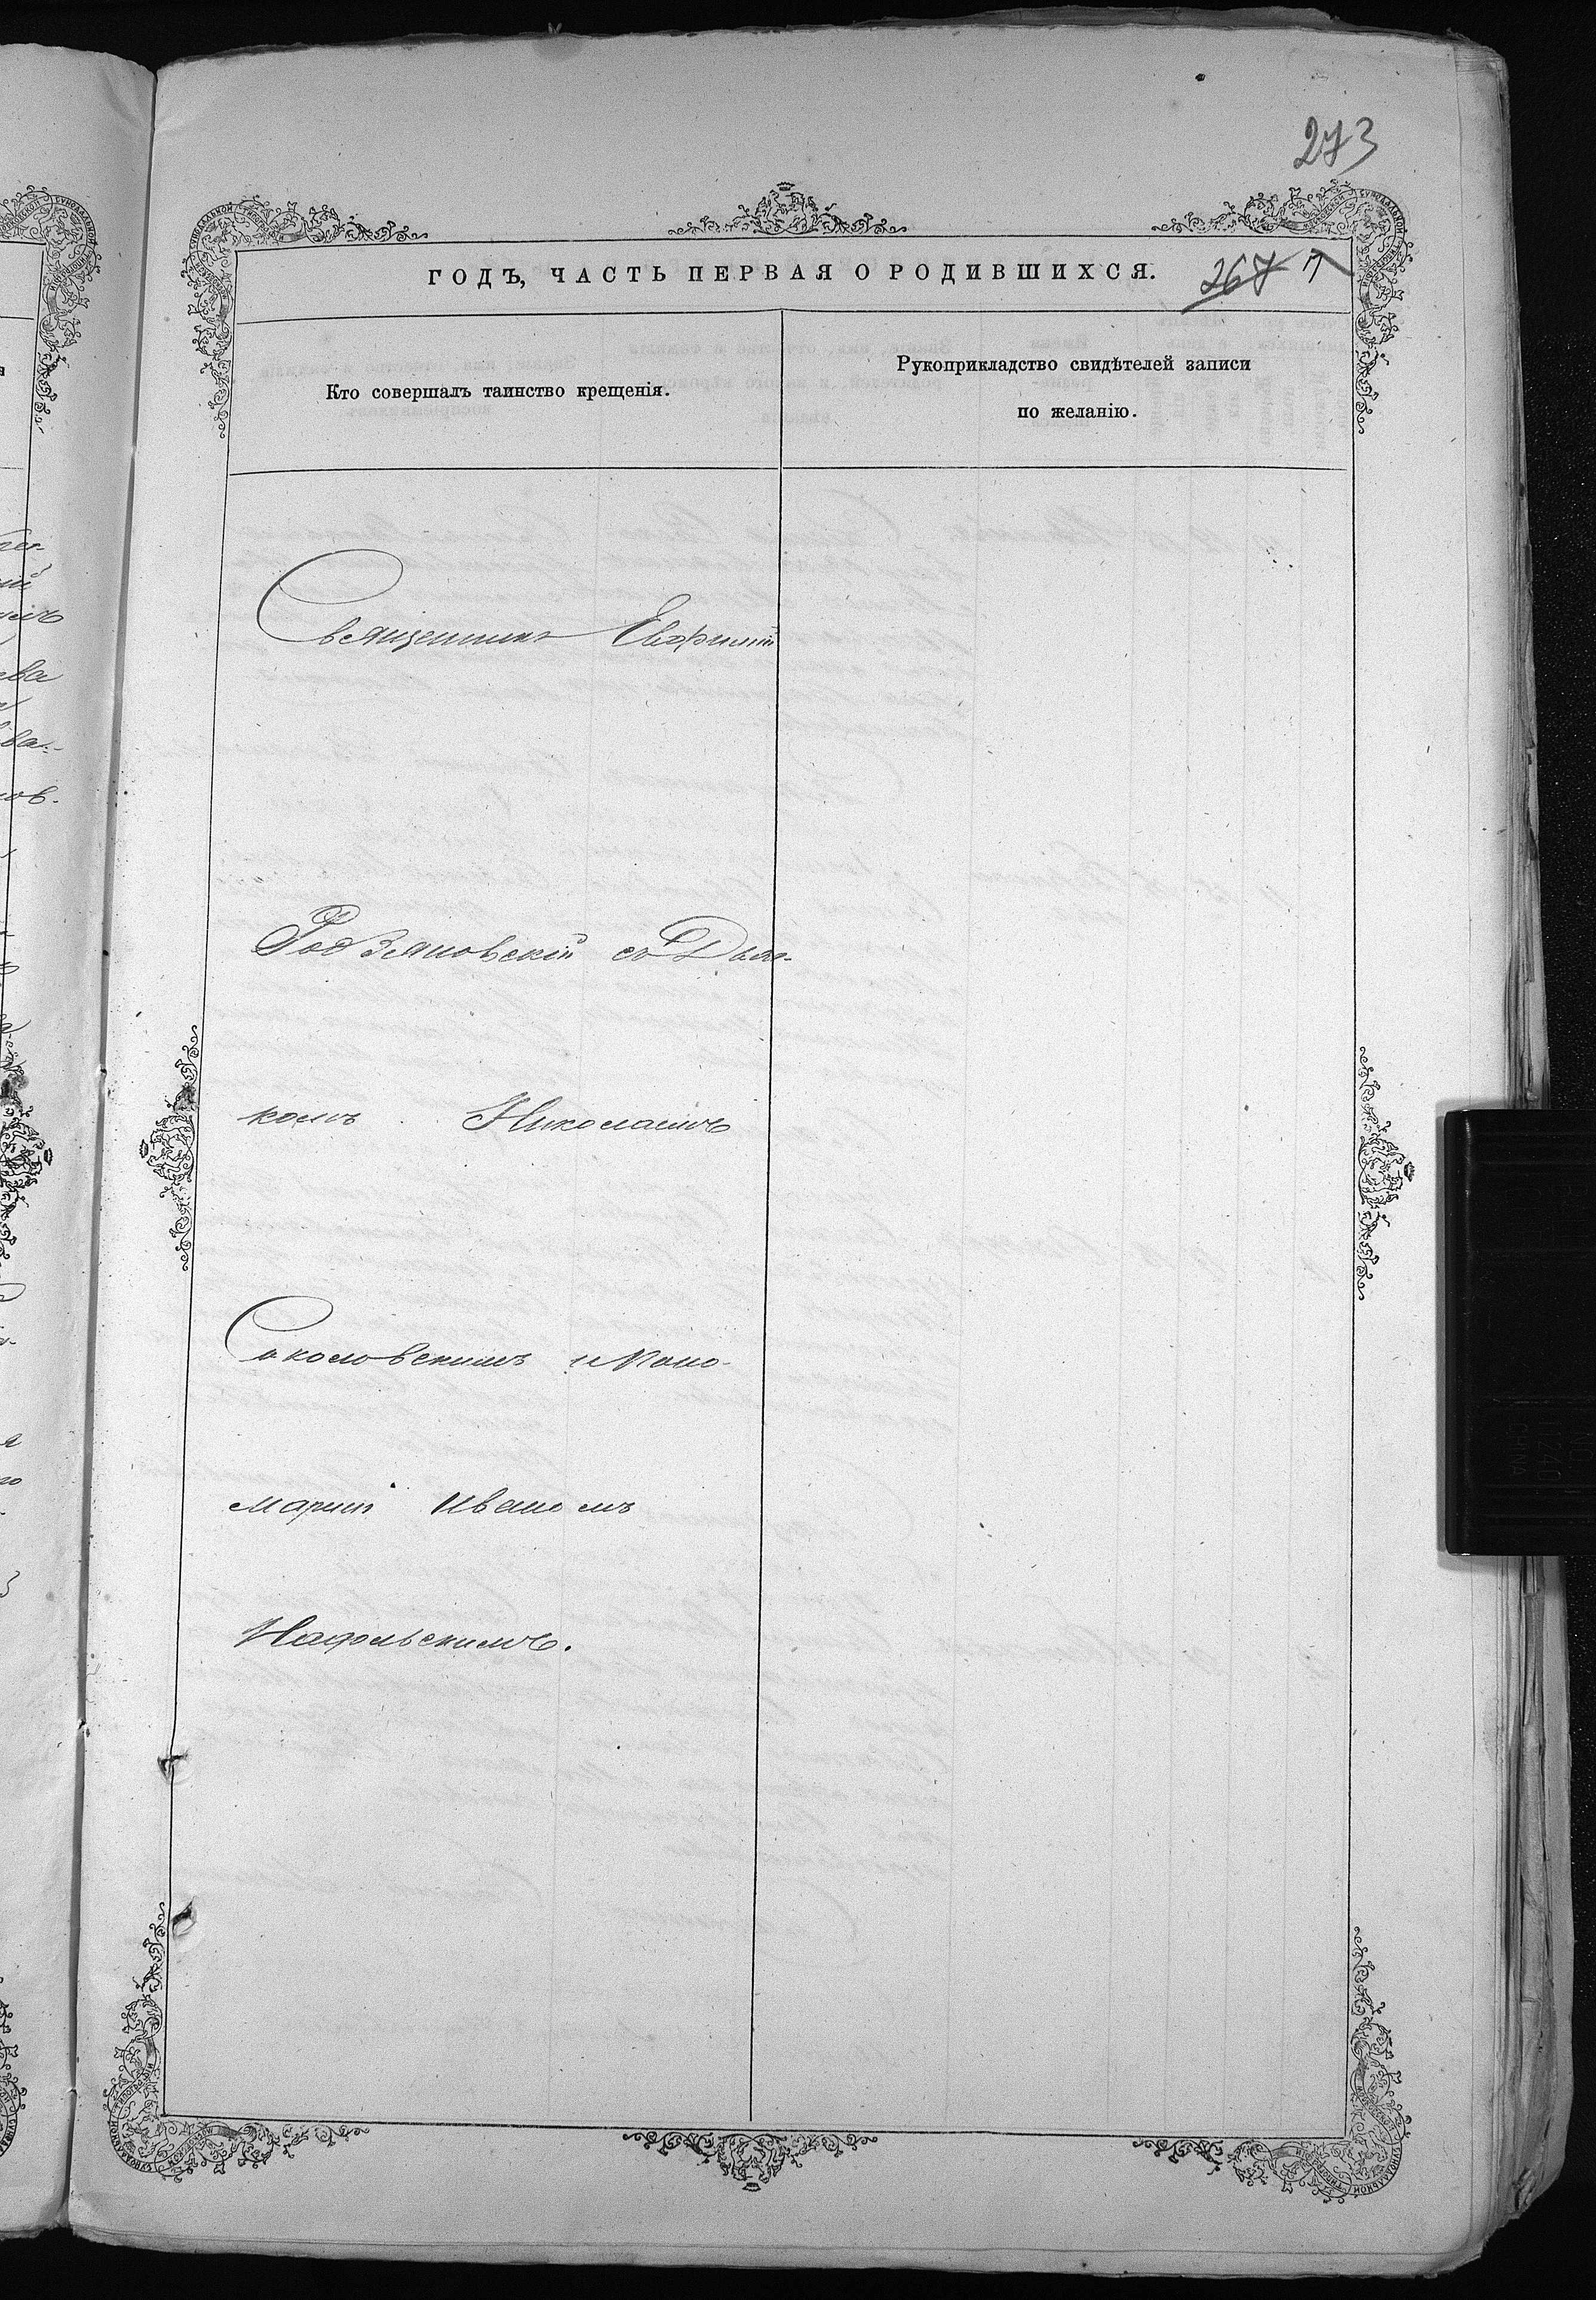 273
ГОДЪ, ЧАСТЬ ПЕРВАЯ О РОДИВШИХСЯ.
267
Кто совершалъ таинство крещенія.
Рукоприкладство свидѣтелей записи
по желанію.
Священникъ Евфимій
Родзяновскій съ Дья-
комъ Николаемъ
Соколовскимъ и Поно-
марем Иваномъ
Надольскимъ.